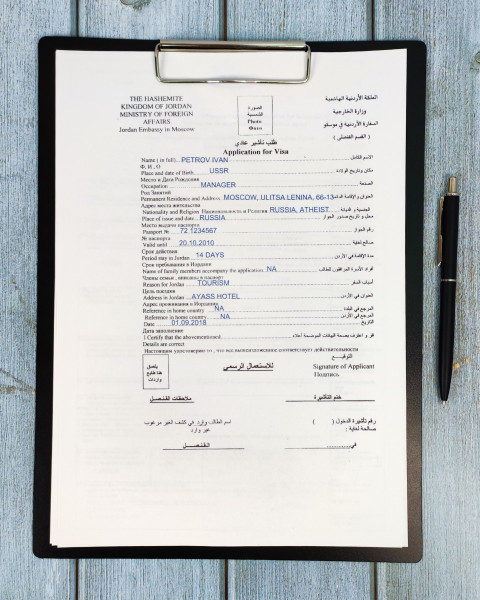 THE HASHEMITE
KINGDOM OF JORDAN
MINISTRY OF FOREIGN
AFFAIRS
Jordan Embassy in Moscow
الصورة
الشخصية
Photo
Фото
المملكة الأردنية الهاشمية
وزارة الخارجية
السفارة الأردنية في موسكو
( القسم القنصلي )
طلب تأشير عادي
Application for Visa
Name ( in full) PETROV IVAN الاسم الكامل
Ф, И , О
Place and date of Birth USSR مكان وتاريخ الولادة
Место и Дата Рождения
Occupation MANAGER الصنعة
Род Занятий
Permanent Residence and Address. MOSCOW, ULITSA LENINA, 66-13 العنوان والإقامة الدائمة
Адрес места жительства
Nationality and Religion Национальность и Религия RUSSIA, ATHEIST الجنسية و الديانة
Place of issue and date RUSSIA محل وتاريخ صدور الجواز
Место выдачи паспорта
Passport № 72 1234567 رقم الجواز
№ паспорта
Valid until 20.10.2010 صالح لغاية
Срок действия
Period stay in Jordan 14 DAYS مدة الإقامة في الأردن
Срок пребывания в Иордании
Name of family members accompany the application. NA أفراد الأسرة المرافقون للطالب
Члены семьи , вписаны в паспорт
Reason for Jordan TOURISM أسباب السفر
Цель поездки
Address in Jordan AYASS HOTEL العنوان في الأردن
Адрес проживания в Иордании
Reference in home country NA المرجع في البلدة
Reference in home country NA المرجع في الأردن
Date 01.09.2018 التاريخ
Дата заполнения
I Certify that the abovementioned و اعترف بصحة البيانات الموضحة أعلاه
Details are correct
Настоящим удостоверяю то, что все вышеизложенное соответствует действительности
يلصق
هنا طابع
واردات
للاستعمال الرسمي
التوقيع
Signature of Applicant
Подпись
ملاحظات القنصل
ختم التأشيرة
اسم الطالب وارد في كشف الغير مرغوب
غير وارد
رقم تأشيرة الدخول ( )
صالحة لغاية :
القنصل
في